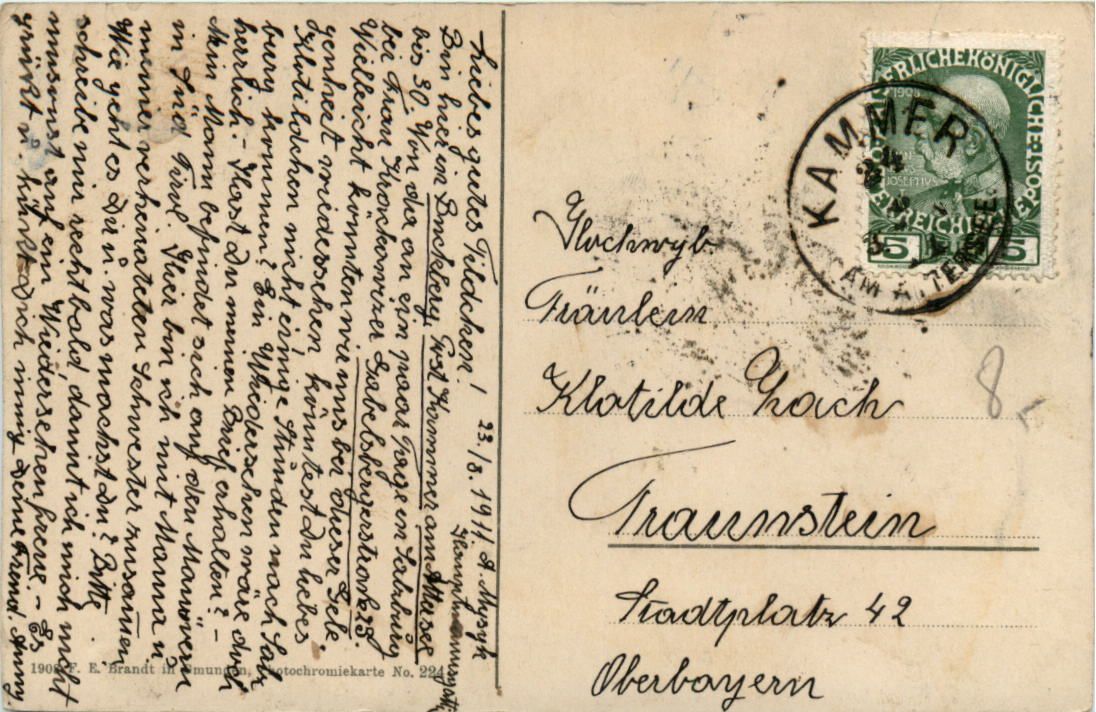 Liebes gutes Tildchen!
23./8. 1911
Bin hier in Buchberg, Post Kammer am Attersee
bis 30. Von da an ein paar Tage in Salzburg
bei Frau Gabelsbergerstrasse 23.
Vielleicht könnten wir uns bei dieser Gele-
genheit wiedersehen könntest Du liebes
Klotildchen nicht einige Stunden nach Salz
burg kommen? Ein Wiedersehen wäre doch
herrlich. - Hast Du meinen Brief erhalten? -
Mein Mann befindet sich auf den Manövern
in Süd Tirol. Hier bin ich mit Mama u.
meiner verheirateten Schwester zusamen.
Wie geht es Dir u. was machst Du? Bitte
schreibe mir recht bald, damit ich mich nicht
umsonst auf ein Wiedersehen freue. - Es
grüßt u. küßt Dich innig Deine Freund. Anny
1908 F. E. Brandt in Gmunden, Photochromiekarte No. 224
KAMMER
AM ATTERSEE
1908
5 5
Hochwgb.
Fräulein
Klotilde Zach
Traunstein
Stadtplatz 42
Oberbayern
8,-